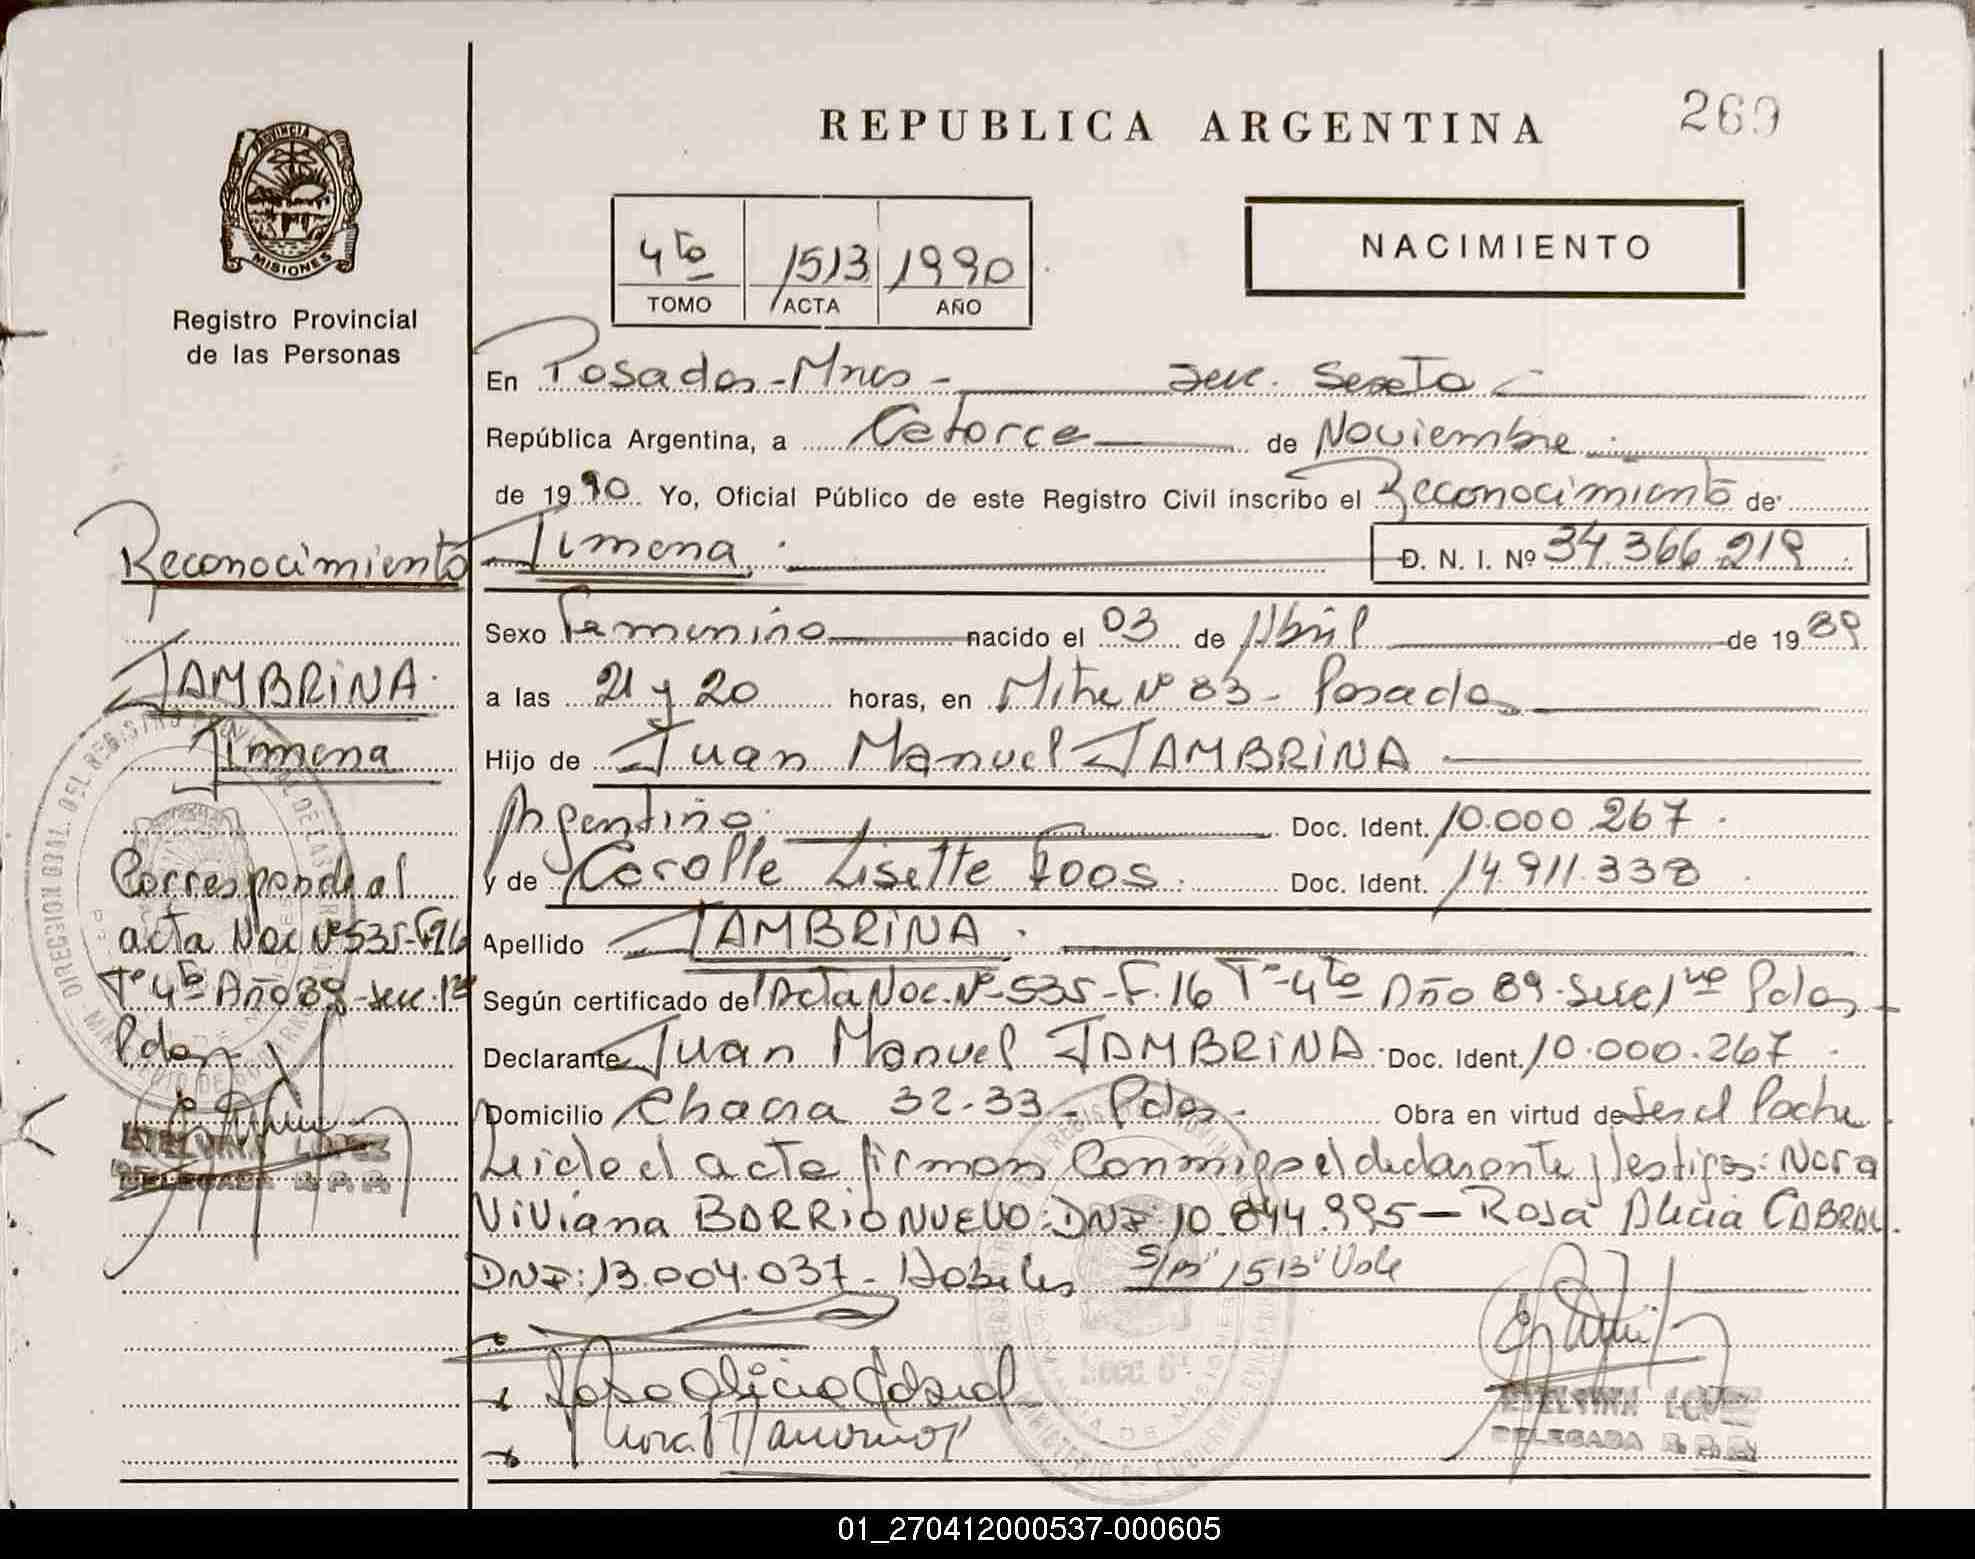 REPUBLICA ARGENTINA
269
PROVINCIA DE
MISIONES
Registro Provincial
de las Personas
4to 1513 1990
TOMO ACTA AÑO
NACIMIENTO
En Posadas - Mnes - Secc. Sexta
República Argentina, a Catorce de Noviembre
de 1990 Yo, Oficial Público de este Registro Civil inscribo el Reconocimiento de
Jimena D. N. I. Nº 34.366.219
Sexo Femenino nacido el 03 de Abril de 1989
a las 21 y 20 horas, en Mitre Nº 83 - Posadas
Hijo de Juan Manuel JAMBRINA
Argentino Doc. Ident. 10.000.267
y de Carolle Lisette Foos Doc. Ident. 14.911.338
Apellido JAMBRINA
Según certificado de Acta Nac. Nº 535 - F. 16 Tº 4to Año 89 - Secc 1ra Pdas
Declarante Juan Manuel JAMBRINA Doc. Ident. 10.000.267
Domicilio Chacra 32-33 - Pdas - Obra en virtud de Ser el Padre
Leida el acta firman conmigo el declarante y testigos: Nora
Viviana BARRIONUEVO: DNI: 10.844.995 - Rosa Alicia CABRAL
DNI: 13.004.037 - Habiles S/R 1513 Vale
Rosa Alicia Cabral
ETELVINA LOPEZ
DELEGADA R.P.P.
Reconocimiento
JAMBRINA
Jimena
Corresponde al
acta Nac Nº 535 - F 16
Tº 4to Año 89 - Secc. 1ra
Pdas
ETELVINA LOPEZ
DELEGADA R.P.P.
Secc. 6ª
01_270412000537-000605